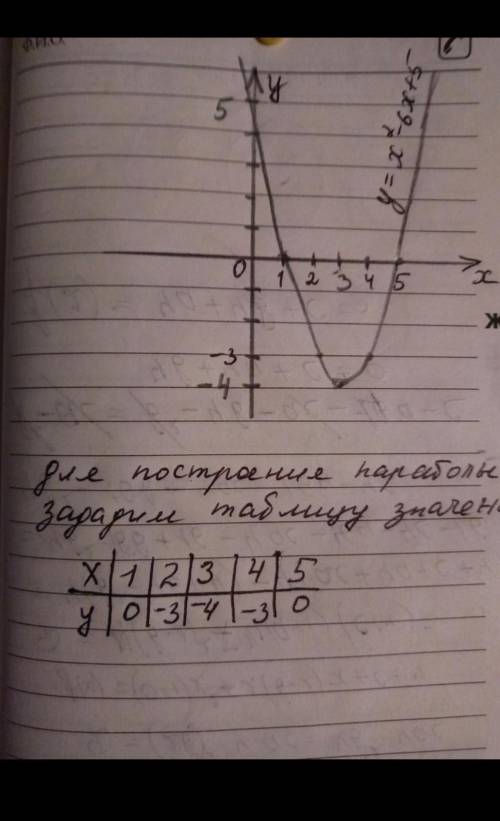 y
5
y = x² - 6x + 5
0 1 2 3 4 5 x
ж
-3
-4
для построения параболы
зададим таблицу значен
x 1 2 3 4 5
y 0 -3 -4 -3 0